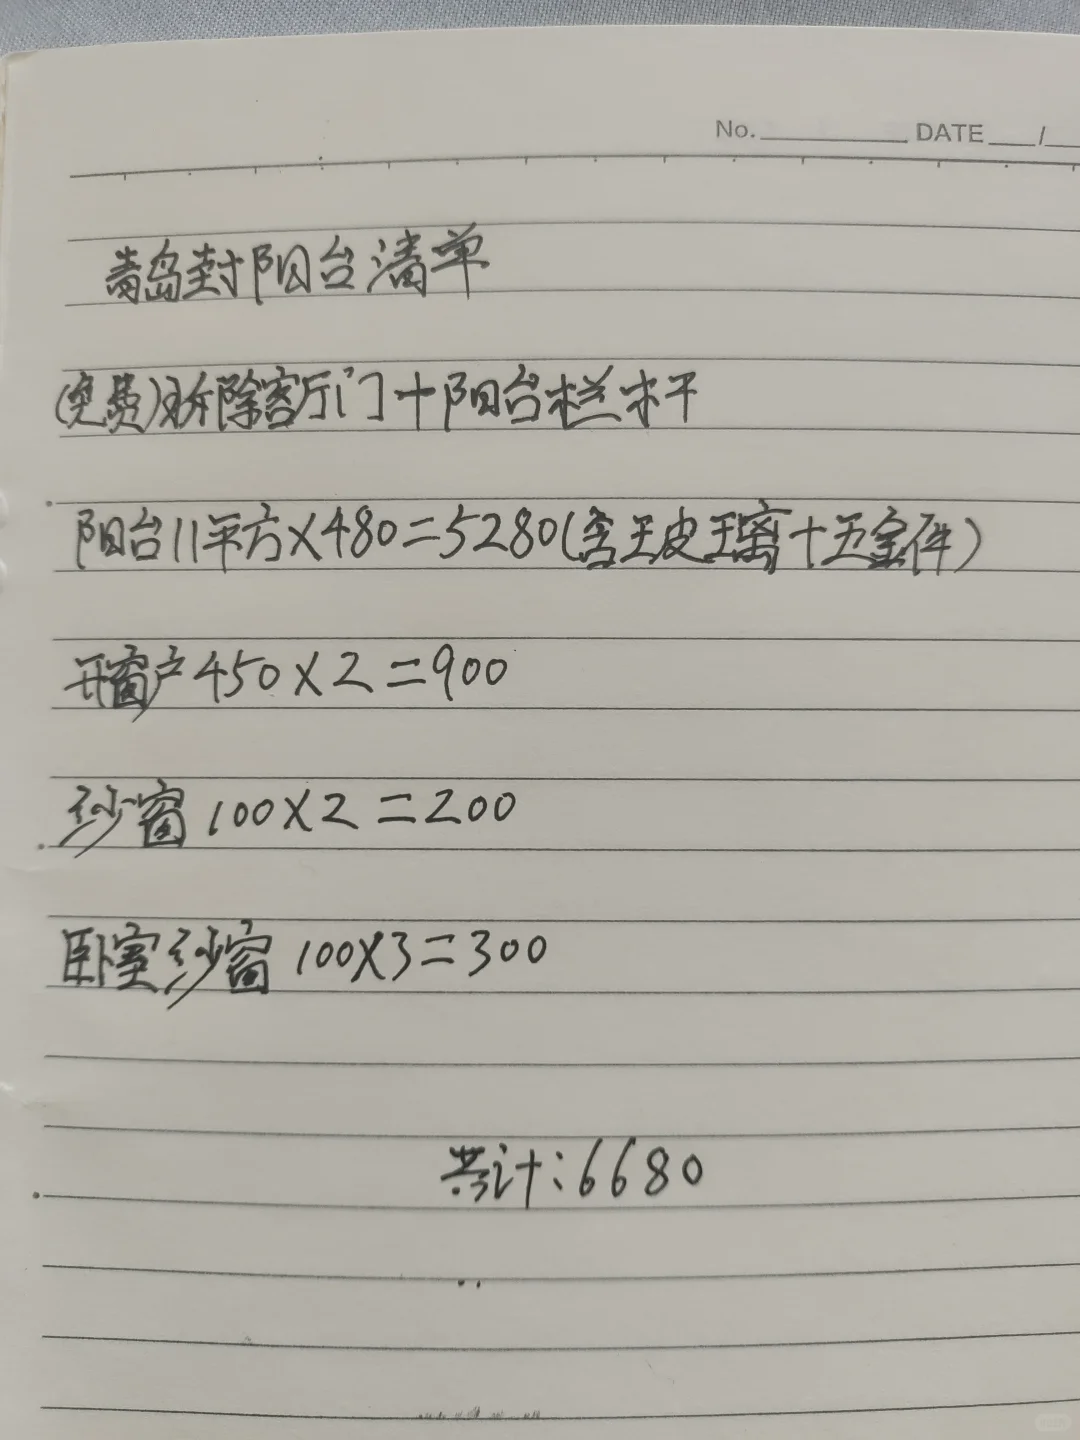 No. DATE /
青岛封阳台清单
(免费)拆除客厅门+阳台栏杆
阳台11平方×480=5280(含玻璃+五金件)
开窗户450×2=900
纱窗100×2=200
卧室纱窗100×3=300
共计:6680